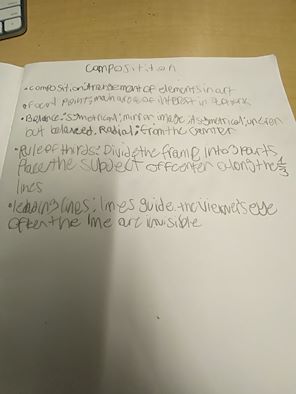 composititon
• composition: arrangement of elements in art
• focal point: main area of interest in
• Balance: symetrical; mirror image, asymetrical; uneven
but balanced. Radial; from the center
• Rule of thirds: Divide the frame into 3 parts
Place the subject off center along the 1/3
lines
• leading lines; lines guide the viewer's eye
often the line are invisible